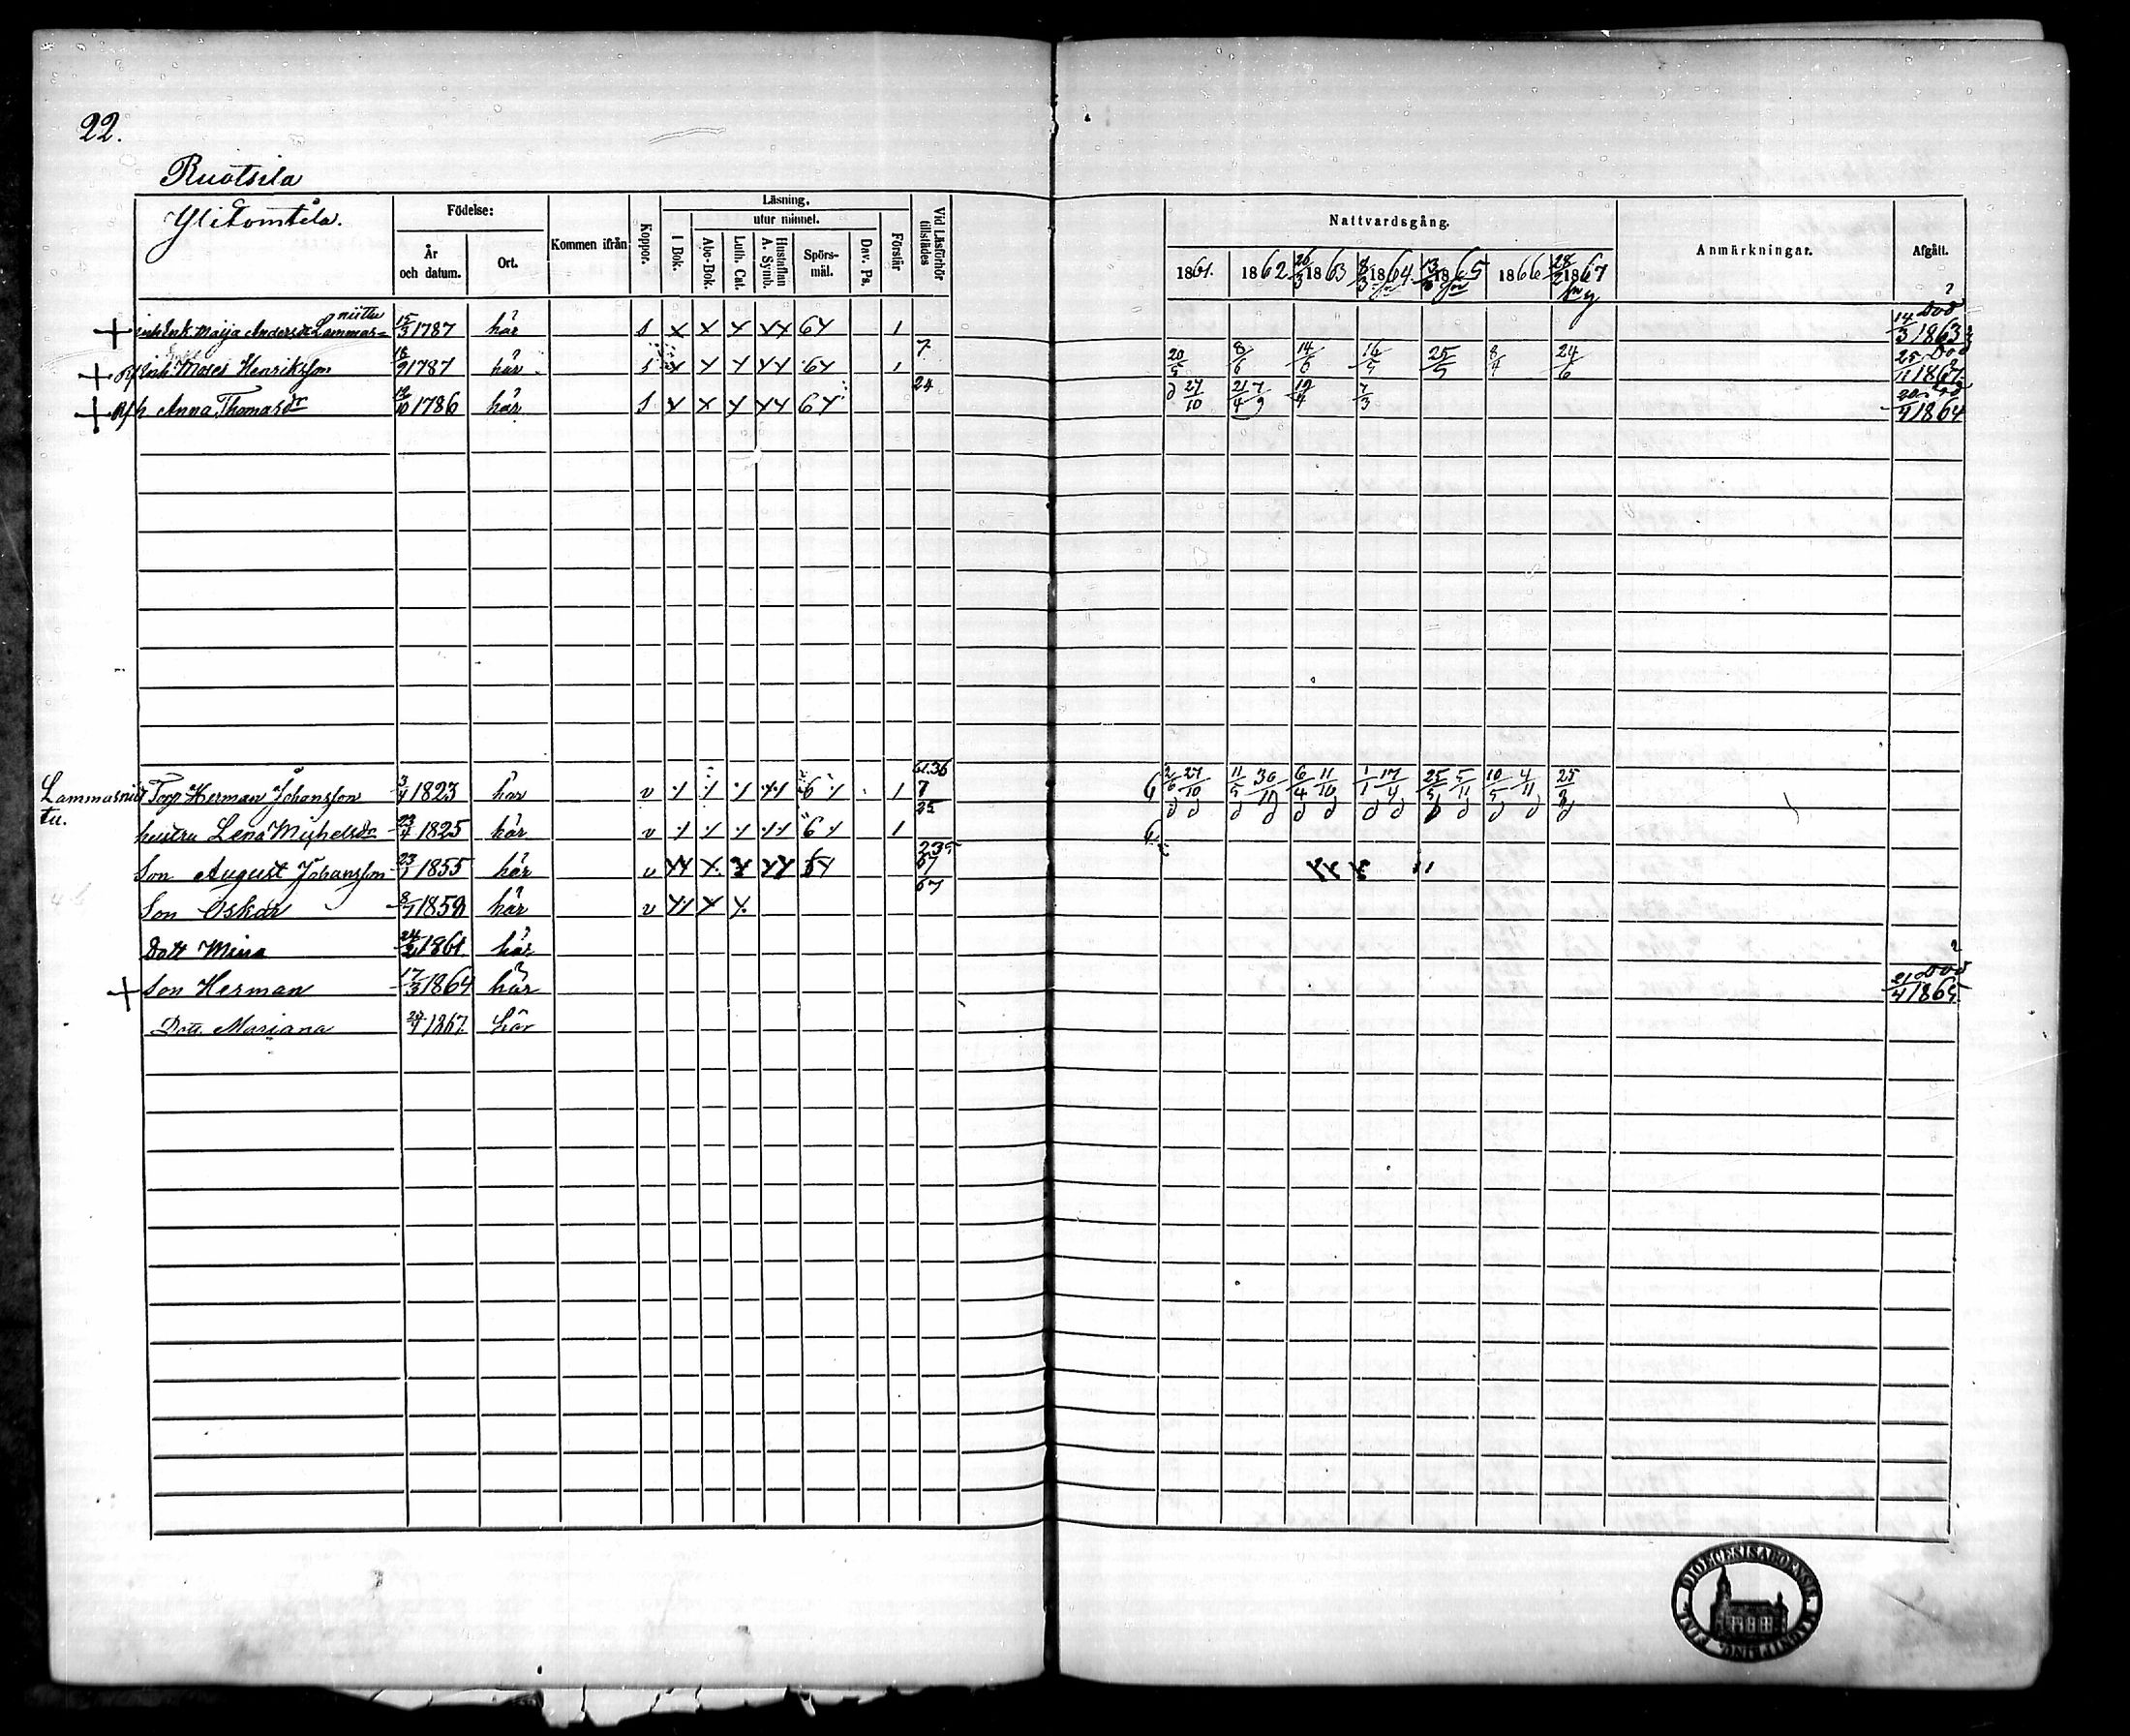 22.
Ruotsila
Ylitomtila.
Födelse:
År och datum.
Ort.
Kommen ifrån
Koppor.
Läsning,
utur minnet.
I Bok.
Abc-Bok.
Luth. Cat.
Hustaflan A. Symb.
Spörsmål.
Dav. Ps.
Förstår
Vid Läsförhör tillstädes
Nattvardsgång.
1861. 1862 26/3 1863 1864 1865 1866 28/2 1867
Anmärkningar.
Afgått.
niittu
inh Enk. Maija Andersdr Lammas= 15/3 1787 här s x x x xx 64 1 Död 14/3 1863
Inh Moses Henriksson 1787 här s x x x xx 64 1 7 8/6 14/6 16/5 25/5 8/4 24/6 25 Död 1867
h Anna Thomasdr 12/10 1786 här s x x x xx 64 24 27/10 21/4 7/9 19/4 7/3 20 Död /4 1864
Lammasniit
tu.
Torp Herman Johansson 3/4 1823 här v 6 1 7 2/6 27/10 11/5 30/11 6/4 11/10 1/1 17/4 25/5 5/11 10/5 4/11 25/3
hustru Lena Michelsdr 23/4 1825 här v 6 1 25
Son August Johansson 23/1 1855 här v xx x x xx 64 67
Son Oskar 8/7 1859 här v x x 67
Dott Mina 24/2 1861 här
Son Herman 17/3 1864 här Död 21/4 1865
Dott. Mariana 1867. här
DIOECESIS ABOENSIS MAGNI PRINC. FINL.